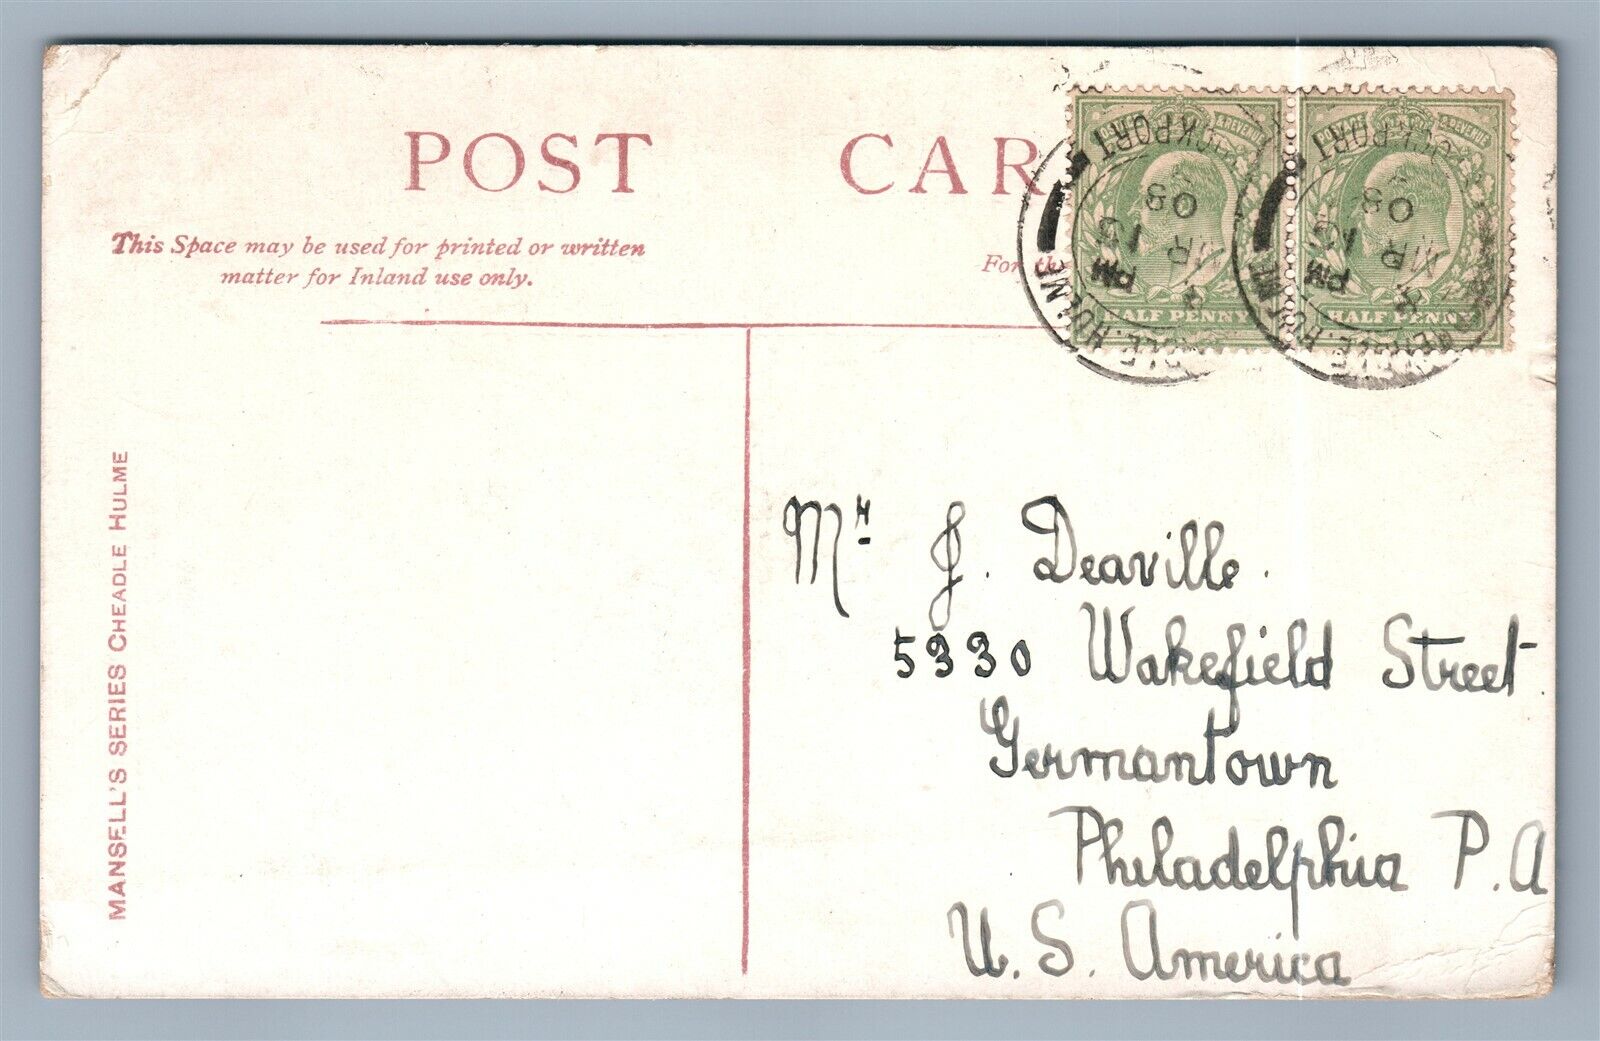 POST CAR
This Space may be used for printed or written
matter for Inland use only.
For th
MANSELL'S SERIES CHEADLE HULME
POSTAGE & REVENUE
HALF PENNY
& REVENUE
HALF PENNY
PM
MR 15
08
PM
MR 15
08
Mr. J. Deaville.
5330 Wakefield Street
Germantown
Philadelphia P.A
U.S. America